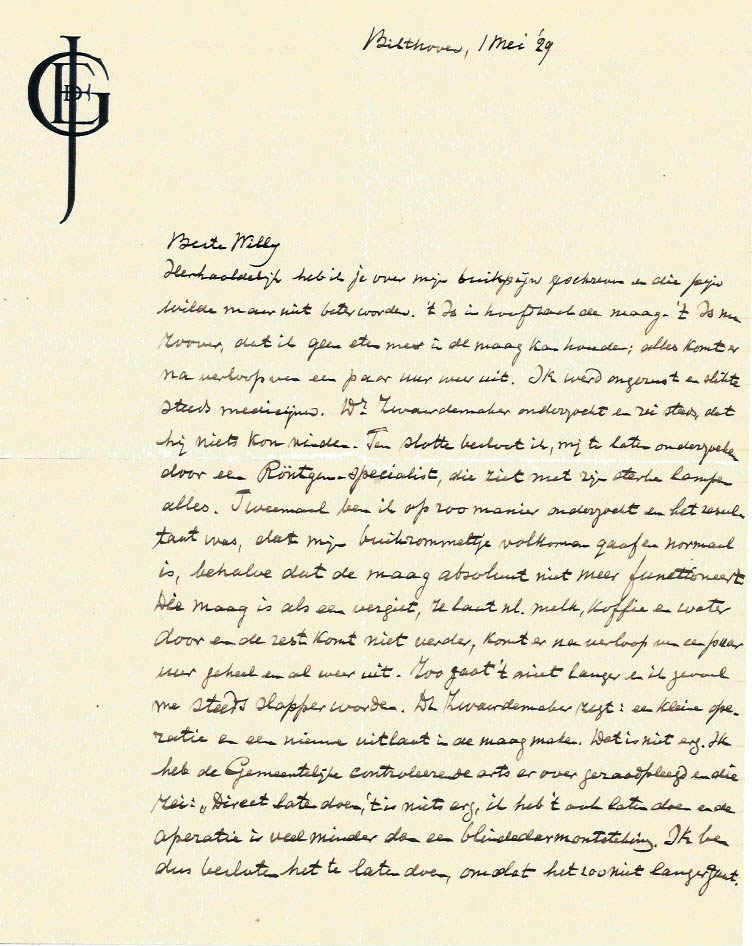 Bilthoven, 1 Mei '29
Beste Willy
Herhaaldelijk heb ik je over mijn buikpijn geschreven en die pijn
wilde maar niet beter worden. 't Is in hoofdzaak de maag. 't Is nu
zoover, dat ik geen eten meer in de maag kan houden; alles komt er
na verloop van een paar uur weer uit. Ik werd ongerust en slikte
steeds medicijnen. Dr Zwaardemaker onderzocht en zei steeds, dat
hij niets kon vinden. Ten slotte besloot ik, mij te laten onderzoeken
door een Röntgen-specialist, die ziet met zijn sterke lampen
alles. Tweemaal ben ik op zoo manier onderzocht en het resul-
taat was, dat mijn buikrommeltje volkomen gaaf en normaal
is, behalve dat de maag absoluut niet meer functioneert.
Die maag is als een vergiet, ze laat nl. melk, koffie en water
door en de rest komt niet verder, komt er na verloop van een paar
uur geheel en al weer uit. Zoo gaat 't niet langer en ik gevoel
me steeds slapper worden. Dr Zwaardemaker zegt: een kleine ope-
ratie en een nieuwe uitlaat in de maag maken. Dat is niet erg. Ik
heb de Gemeentelijke controleerende arts er over geraadpleegd en die
zei: „Direct laten doen, 't is niets erg, ik heb 't ook laten doen en de
operatie is veel minder dan een blindedarmontsteking. Ik ben
dus besloten het te laten doen, omdat het zoo niet langer gaat.